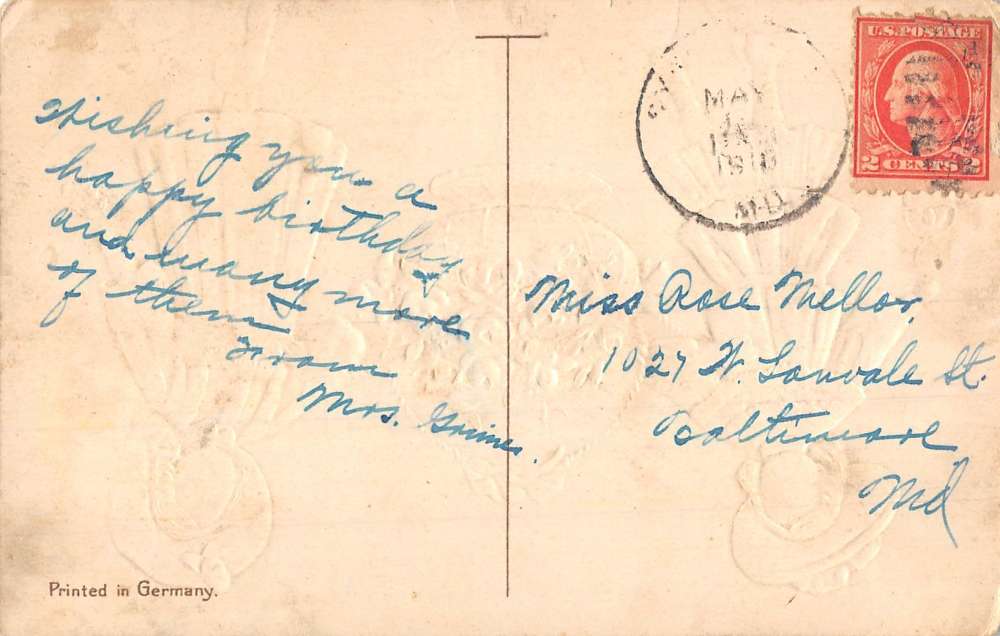 Wishing you a
happy birthday
and many more
of them
From
Mrs. Grimes.
MAY
1918
MD.
U.S. POSTAGE
2 CENTS 2
Miss Rose Mellor,
1027 W. Lanvale St.
Baltimore
Md
Printed in Germany.